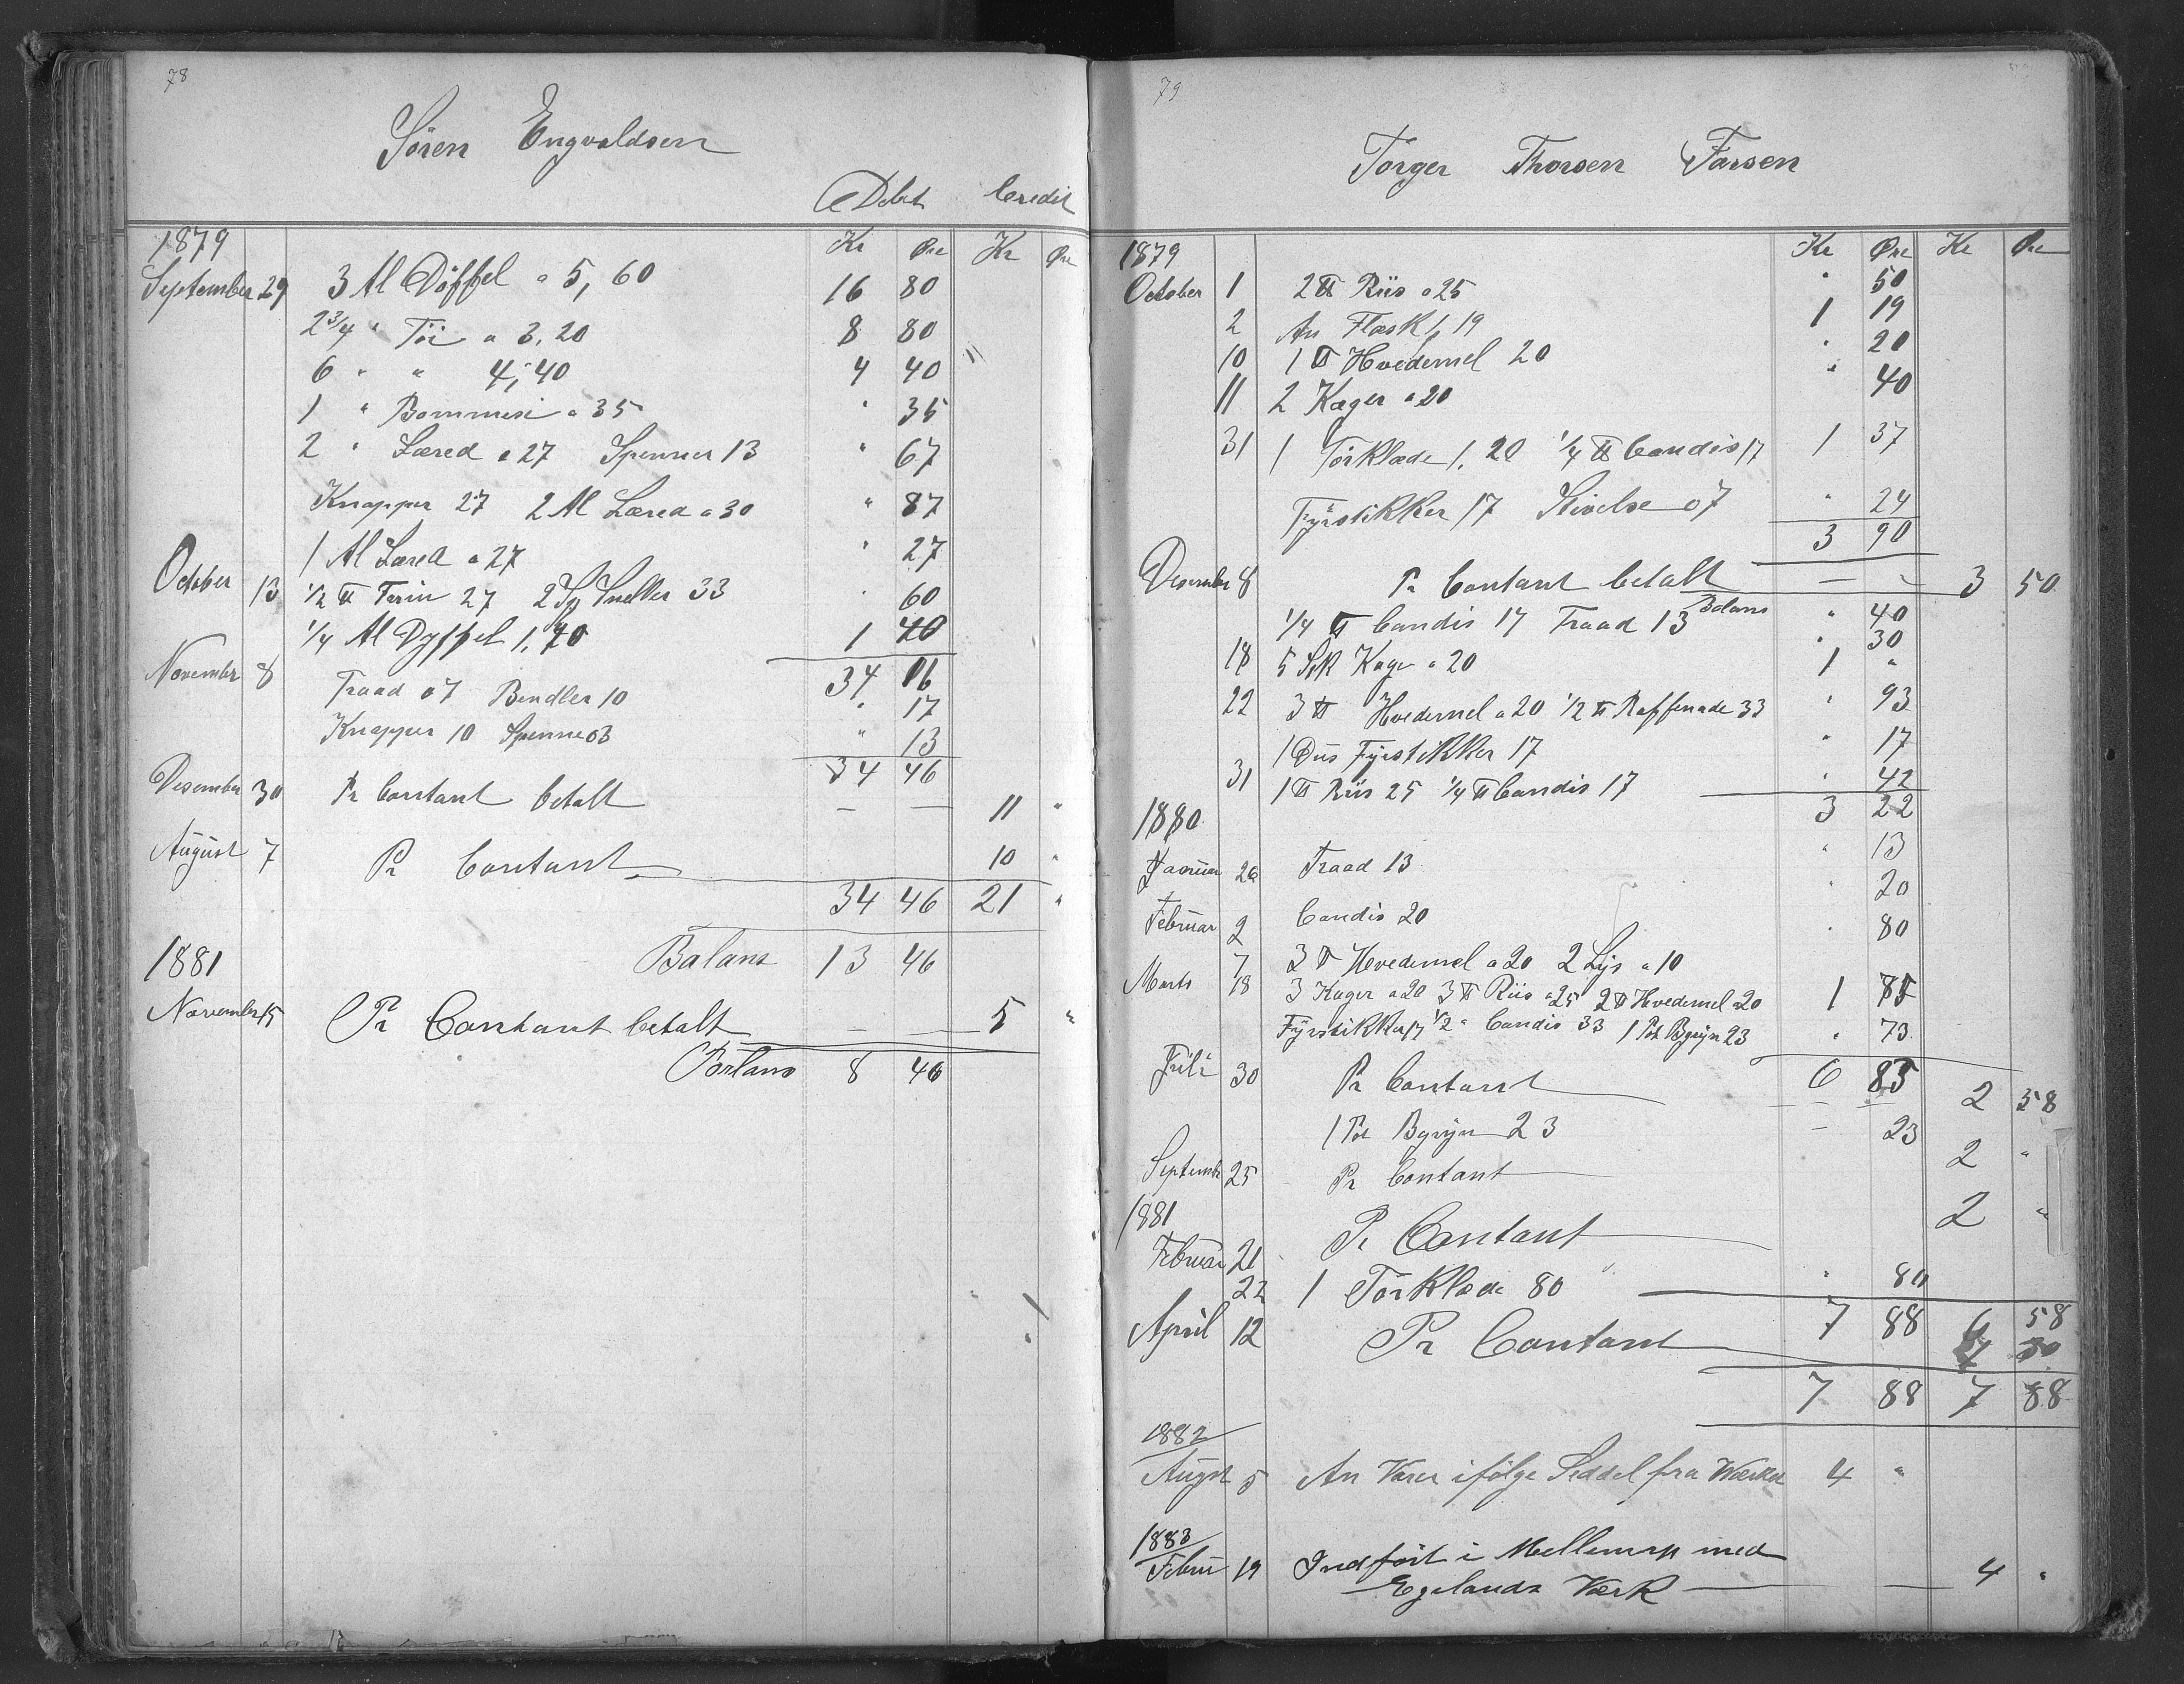 78
Søren Engvoldsen
Debet Credit
1879 Kr Øre Kr Øre
September 29 3 Al Döffel a 5,60 16 80
2 3/4 " Töi a 3,20 8 80
6 " " 4,40 4 40 "
1 " Bommesi a 35 " 35
2 " Læred a 27 Spenner 13 " 67
Knapper 27 2 Al Læred a 30 " 87
1 Al Læred a 27 " 27
October 13 1/2 ℔ Terin 27 2 Sp Sneller 33 " 60
1/4 Al Dyffel 1,40 1 40
34 16
November 8 Traad 07 Bendler 10 " 17
Knapper 10 Spenne 03 " 13
34 46
Desember 30 Pr Contant betalt — — 11 "
August 7 Pr Contant 10 "
34 46 21 "
Balans 13 46
1881
November 15 Pr Contant betalt — — 5 "
Balans 8 46
79
Törger Thorsen Forsen
1879 Kr Øre Kr Øre
October 1 2 ℔ Riis a 25 " 50
2 An Flæsk 1,19 1 19
10 1 ℔ Hvedemel 20 " 20
11 2 Kager a 20 " 40
31 1 Törklæde 1,20 1/4 ℔ Candis 17 1 37
Fyrstikker 17 Stivelse 07 " 24
3 90
Desember 8 Pr Contant betalt — — 3 50
Balans " 40
1/4 ℔ Candis 17 Traad 13 " 30
18 5 Stk Kager a 20 1 "
22 3 ℔ Hvedemel a 20 1/2 ℔ Raffenade 33 " 93
1 Dus Fyrstikker 17 " 17
31 1 ℔ Riis 25 1/4 ℔ Candis 17 " 42
3 22
1880
Januar 26 Traad 13 " 13
Februar 2 Candis 20 " 20
7 3 ℔ Hvedemel a 20 2 Lys a 10 " 80
Marts 18 3 Kager a 20 3 ℔ Riis a 25 2 ℔ Hvedemel a 20 1 75
Fyrstikker 17 1/2 " Candis 33 1 Pot Bgryn 23 " 73
6 83
Juli 30 Pr Contant — — 2 58
1 Pot Bgryn 23 — 23
September 25 Pr Contant 2 "
1881
Februar 21 Pr Contant 2 "
22 1 Törklæde 80 " 80
7 88 6 58
April 12 Pr Contant 1 30
7 88 7 88
1882
August 5 An Varer ifølge Seddel fra Værket 4 "
1883
Febru 19 Indfört i Mellemrgn med
Egelands Værk — — 4 "